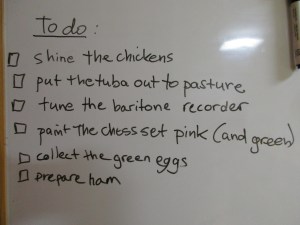 To do:
shine the chickens
put the tuba out to pasture
tune the baritone recorder
paint the chess set pink (and green)
collect the green eggs
prepare ham